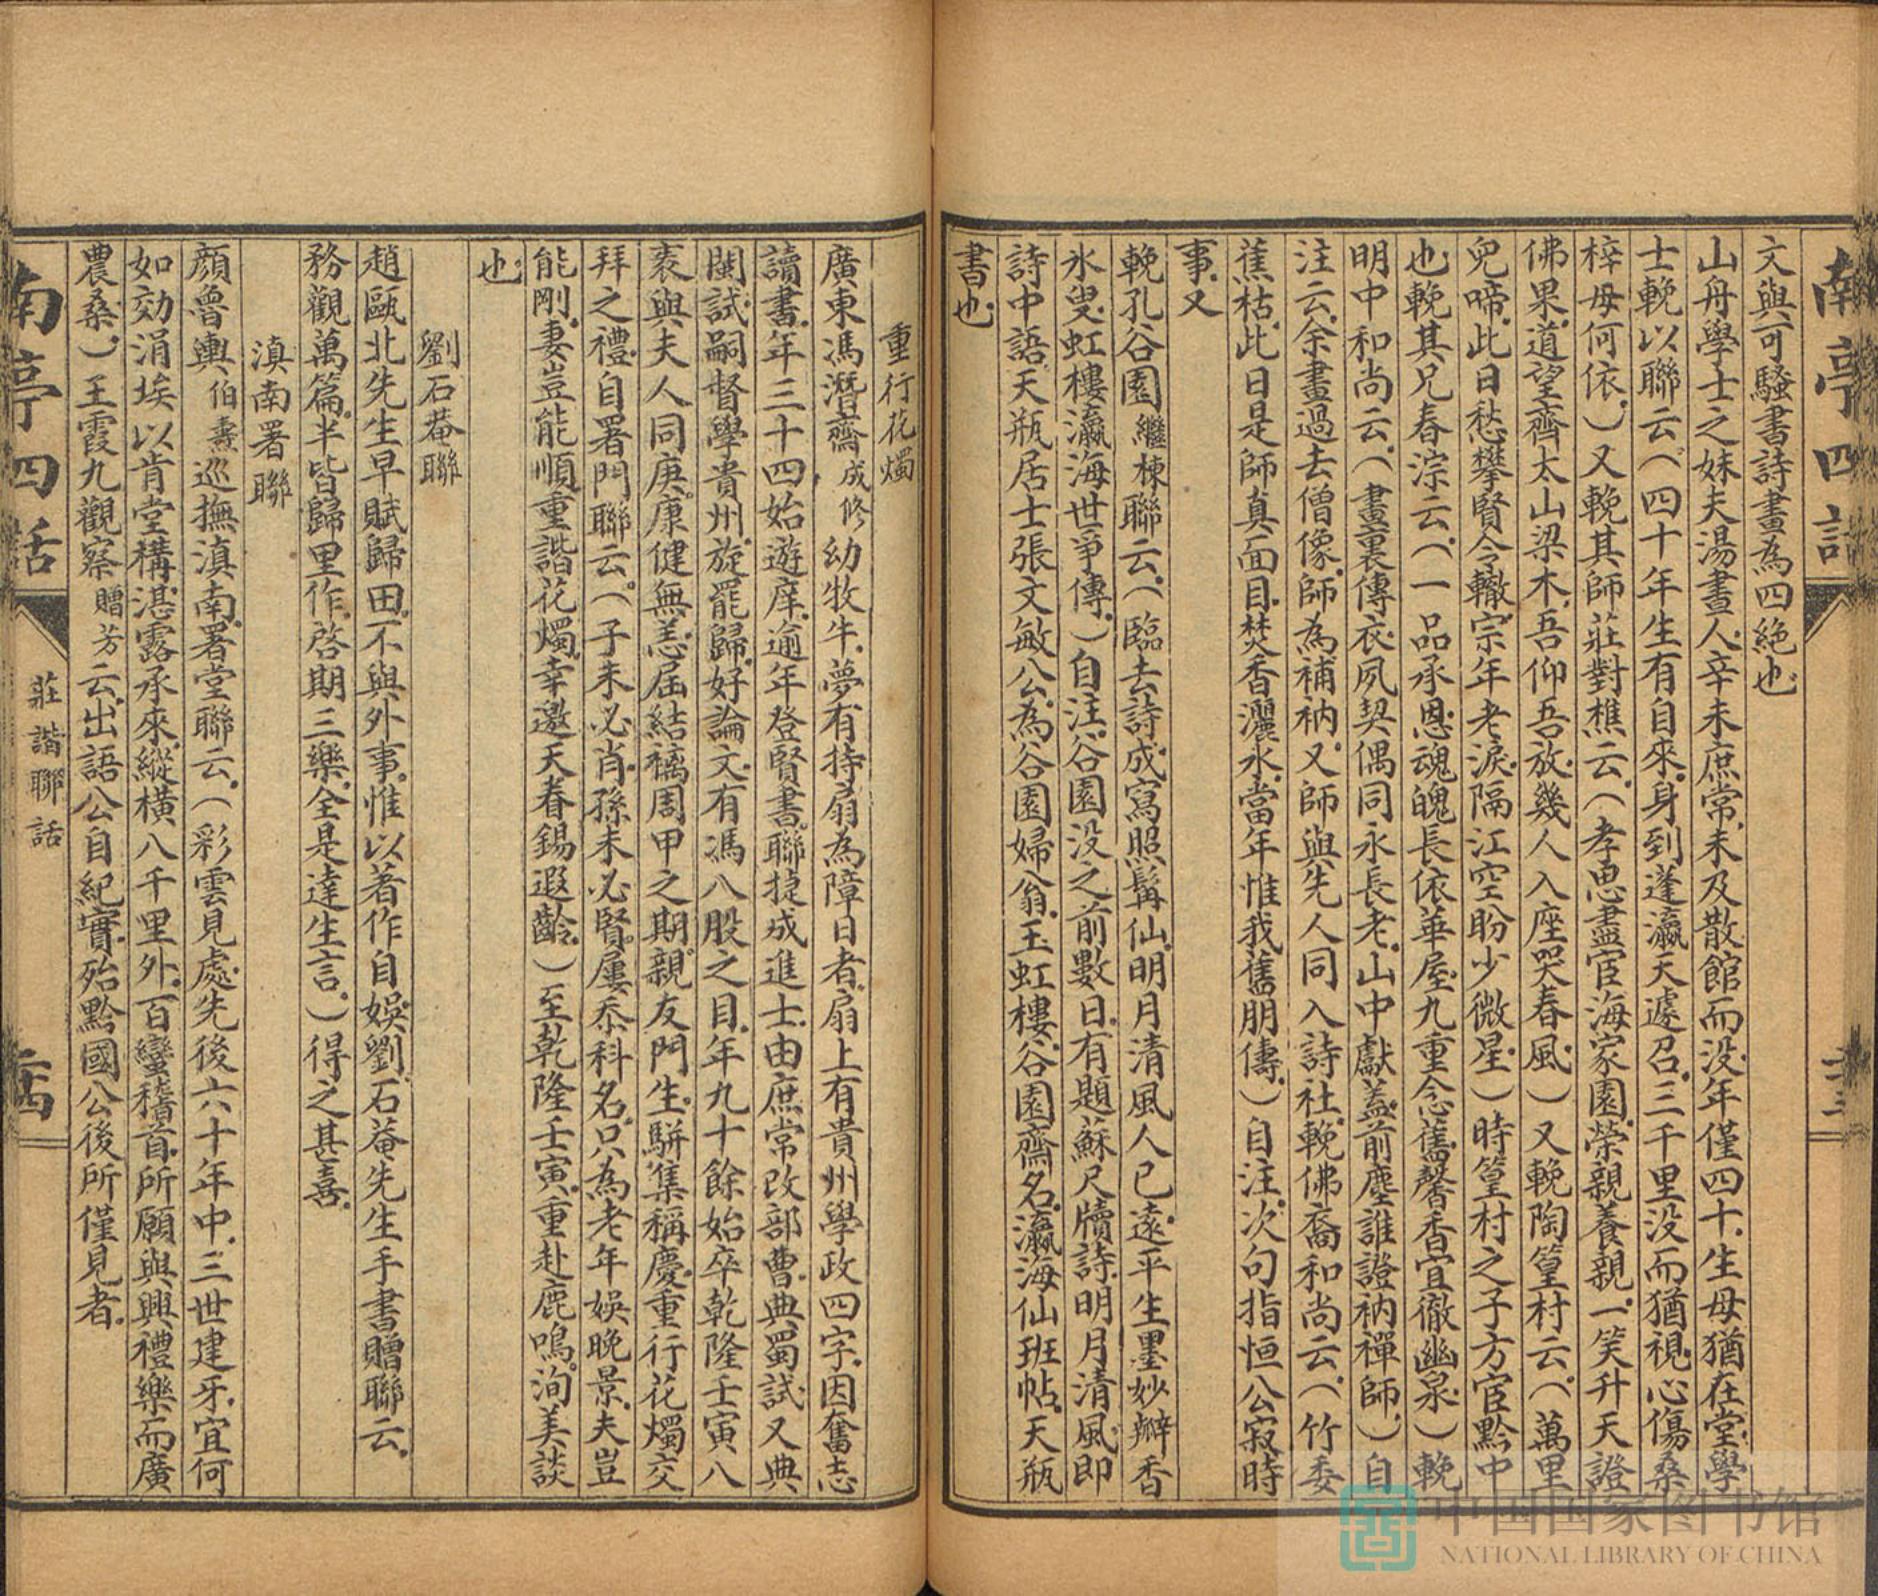 南亭四話
文與可騷書詩畫為四絶也
山舟學士之妹夫湯畫人辛未庶常未及散館而没年僅四十生母猶在堂學
士輓以聯云（四十年生有自來身到蓬瀛天遽召三千里没而猶視心傷桑
梓母何依）又輓其師莊對樵云（孝思盡宦海家園榮親養親一笑升天證
佛果道望齊太山梁木吾仰吾放幾人入座哭春風）又輓陶篁村云（萬里
兒啼此日愁攀賢令轍宗年老淚隔江空盼少微星）時篁村之子方宦黔中
也輓其兄春淙云（一品承恩魂魄長依華屋九重念舊馨香宜徹幽泉）輓
明中和尚云（畫裏傳衣夙契偶同永長老山中獻蓋前塵誰證衲禪師）自
注云余畫過去僧像師為補衲又師與先人同入詩社輓佛裔和尚云（竹委
蕉枯此日是師真面目焚香灑水當年惟我舊朋儔）自注次句指恒公寂時
事又
輓孔谷園繼棟聯云（臨去詩成寫照髯仙明月清風人已遠平生墨妙瓣香
氷叟虹樓瀛海世爭傳）自注谷園没之前數日有題蘇尺牘詩明月清風即
詩中語天瓶居士張文敏公為谷園婦翁玉虹樓谷園齋名瀛海仙班帖天瓶
書也
重行花燭
廣東馮潛齋成修幼牧牛夢有持扇為障日者扇上有貴州學政四字因奮志
讀書年三十四始遊庠逾年登賢書聯捷成進士由庶常改部曹典蜀試又典
閩試嗣督學貴州旋罷歸好論文有馮八股之目年九十餘始卒乾隆壬寅八
袠與夫人同庚康健無恙屆結褵周甲之期親友門生駢集稱慶重行花燭交
拜之禮自署門聯云（子未必肖孫未必賢屢忝科名只為老年娛晚景夫豈
能剛妻豈能順重諧花燭幸邀天眷錫遐齡）至乾隆壬寅重赴鹿鳴洵美談
也
劉石菴聯
趙甌北先生早賦歸田不與外事惟以著作自娛劉石菴先生手書贈聯云
務觀萬篇半皆歸里作啓期三樂全是達生言）得之甚喜
滇南署聯
顏魯輿伯燾巡撫滇南署堂聯云（彩雲見處先後六十年中三世建牙宜何
如効涓埃以肯堂構湛露承來縱橫八千里外百蠻稽首所願與興禮樂而廣
農桑）王霞九觀察贈芳云出語公自紀實殆黔國公後所僅見者
南亭四話
莊諧聯話
中国国家图书馆
NATIONAL LIBRARY OF CHINA